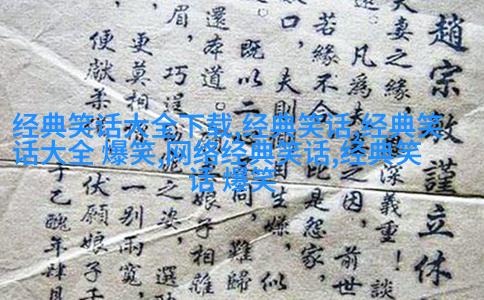 趙宗敏謹立休
夫妻之緣,深義重!談
凡為夫之因,前世
若緣不合比是怨家,
口,夫則生嫌,似
既以二同,難歸
還本道。娘子相離
眉,巧逞之姿,選
更莫相一別兩寬,
便獻柔伏願娘子千
于乙醜年肆月
经典笑话大全下载,经典笑话,经典笑
话大全 爆笑,网络经典笑话,经典笑
话 爆笑